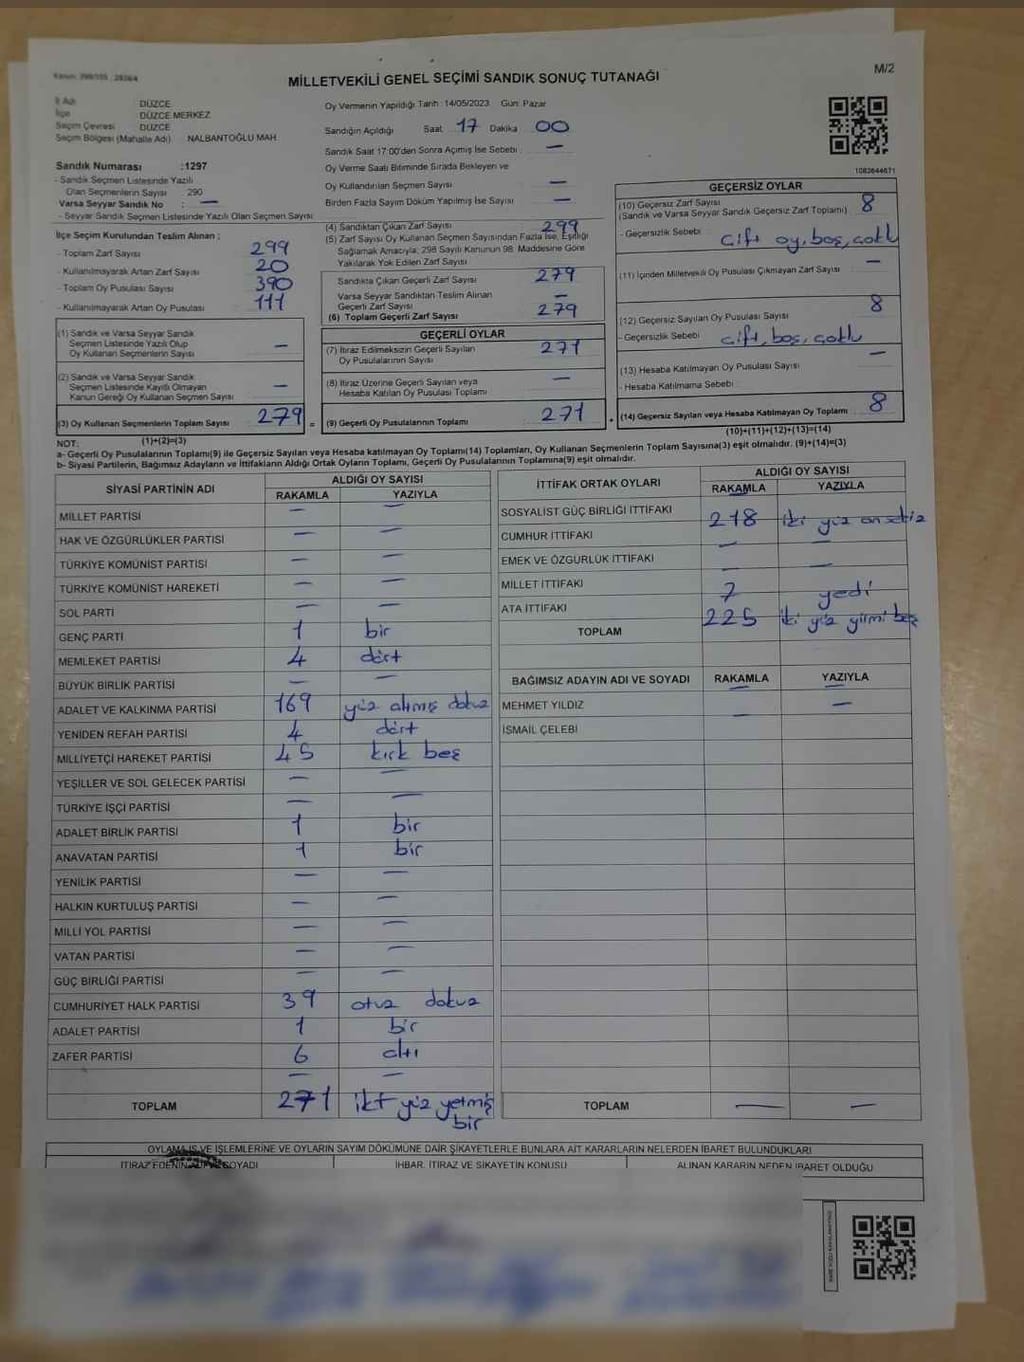 MİLLETVEKİLİ GENEL SEÇİMİ SANDIK SONUÇ TUTANAĞI
M/2
İl Adı DÜZCE
İlçe DÜZCE MERKEZ
Seçim Çevresi DÜZCE
Seçim Bölgesi (Mahalle Adı) NALBANTOĞLU MAH.
Oy Vermenin Yapıldığı Tarih : 14/05/2023 Gün: Pazar
Sandığın Açıldığı Saat 17 Dakika 00
Sandık Saat 17:00'den Sonra Açımış İse Sebebi : —
Oy Verme Saati Bitiminde Sırada Bekleyen ve
Oy Kullandırılan Seçmen Sayısı —
Birden Fazla Sayım Döküm Yapılmış İse Sayısı —
1083644671
Sandık Numarası :1297
- Sandık Seçmen Listesinde Yazılı
Olan Seçmenlerin Sayısı 290
Varsa Seyyar Sandık No : —
- Seyyar Sandık Seçmen Listesinde Yazılı Olan Seçmen Sayısı
İlçe Seçim Kurulundan Teslim Alınan ;
- Toplam Zarf Sayısı 299
- Kullanılmayarak Artan Zarf Sayısı 20
- Toplam Oy Pusulası Sayısı 390
- Kullanılmayarak Artan Oy Pusulası 111
(1) Sandık ve Varsa Seyyar Sandık
Seçmen Listesinde Yazılı Olup
Oy Kullanan Seçmenlerin Sayısı —
(2) Sandık ve Varsa Seyyar Sandık
Seçmen Listesinde Kayıtlı Olmayan
Kanun Gereği Oy Kullanan Seçmen Sayısı —
(3) Oy Kullanan Seçmenlerin Toplam Sayısı 279 =
(4) Sandıktan Çıkan Zarf Sayısı 299
(5) Zarf Sayısı Oy Kullanan Seçmen Sayısından Fazla İse, Eşitliği
Sağlamak Amacıyla; 298 Sayılı Kanunun 98. Maddesine Göre
Yakılarak Yok Edilen Zarf Sayısı
Sandıkta Çıkan Geçerli Zarf Sayısı 279
Varsa Seyyar Sandıktan Teslim Alınan
Geçerli Zarf Sayısı —
(6) Toplam Geçerli Zarf Sayısı 279
GEÇERLİ OYLAR
(7) İtiraz Edilmeksizin Geçerli Sayılan
Oy Pusulalarının Sayısı 271
(8) İtiraz Üzerine Geçerli Sayılan veya
Hesaba Katılan Oy Pusulası Toplamı —
(9) Geçerli Oy Pusulalarının Toplamı 271
GEÇERSİZ OYLAR
(10) Geçersiz Zarf Sayısı
(Sandık ve Varsa Seyyar Sandık Geçersiz Zarf Toplamı) 8
- Geçersizlik Sebebi çift oy, boş, çoklu
(11) İçinden Milletvekili Oy Pusulası Çıkmayan Zarf Sayısı —
(12) Geçersiz Sayılan Oy Pusulası Sayısı 8
- Geçersizlik Sebebi çift, boş, çoklu
(13) Hesaba Katılmayan Oy Pusulası Sayısı —
- Hesaba Katılmama Sebebi
(14) Geçersiz Sayılan veya Hesaba Katılmayan Oy Toplamı 8
NOT: (1)+(2)=(3) (10)+(11)+(12)+(13)=(14)
a- Geçerli Oy Pusulalarının Toplamı(9) ile Geçersiz Sayılan veya Hesaba katılmayan Oy Toplamı(14) Toplamları, Oy Kullanan Seçmenlerin Toplam Sayısına(3) eşit olmalıdır. (9)+(14)=(3)
b- Siyasi Partilerin, Bağımsız Adayların ve İttifakların Aldığı Ortak Oyların Toplamı, Geçerli Oy Pusulalarının Toplamına(9) eşit olmalıdır.
SİYASİ PARTİNİN ADI ALDIĞI OY SAYISI
RAKAMLA YAZIYLA
MİLLET PARTİSİ — —
HAK VE ÖZGÜRLÜKLER PARTİSİ — —
TÜRKİYE KOMÜNİST PARTİSİ — —
TÜRKİYE KOMÜNİST HAREKETİ — —
SOL PARTİ — —
GENÇ PARTİ 1 bir
MEMLEKET PARTİSİ 4 dört
BÜYÜK BİRLİK PARTİSİ — —
ADALET VE KALKINMA PARTİSİ 169 yüz altmış dokuz
YENİDEN REFAH PARTİSİ 4 dört
MİLLİYETÇİ HAREKET PARTİSİ 45 kırk beş
YEŞİLLER VE SOL GELECEK PARTİSİ — —
TÜRKİYE İŞÇİ PARTİSİ — —
ADALET BİRLİK PARTİSİ 1 bir
ANAVATAN PARTİSİ 1 bir
YENİLİK PARTİSİ — —
HALKIN KURTULUŞ PARTİSİ — —
MİLLİ YOL PARTİSİ — —
VATAN PARTİSİ — —
GÜÇ BİRLİĞİ PARTİSİ — —
CUMHURİYET HALK PARTİSİ 39 otuz dokuz
ADALET PARTİSİ 1 bir
ZAFER PARTİSİ 6 altı
— —
TOPLAM 271 iki yüz yetmiş
bir
İTTİFAK ORTAK OYLARI ALDIĞI OY SAYISI
RAKAMLA YAZIYLA
SOSYALİST GÜÇ BİRLİĞİ İTTİFAKI — —
CUMHUR İTTİFAKI 218 iki yüz onsekiz
EMEK VE ÖZGÜRLÜK İTTİFAKI — —
MİLLET İTTİFAKI — —
ATA İTTİFAKI 7 yedi
TOPLAM 225 iki yüz yirmi beş
BAĞIMSIZ ADAYIN ADI VE SOYADI RAKAMLA YAZIYLA
MEHMET YILDIZ — —
İSMAİL ÇELEBİ —
TOPLAM — —
OYLAMA İŞ VE İŞLEMLERİNE VE OYLARIN SAYIM DÖKÜMÜNE DAİR ŞİKAYETLERLE BUNLARA AİT KARARLARIN NELERDEN İBARET BULUNDUKLARI
İTİRAZ EDENİN ADI VE SOYADI İHBAR, İTİRAZ VE ŞİKAYETİN KONUSU ALINAN KARARIN NEDEN İBARET OLDUĞU